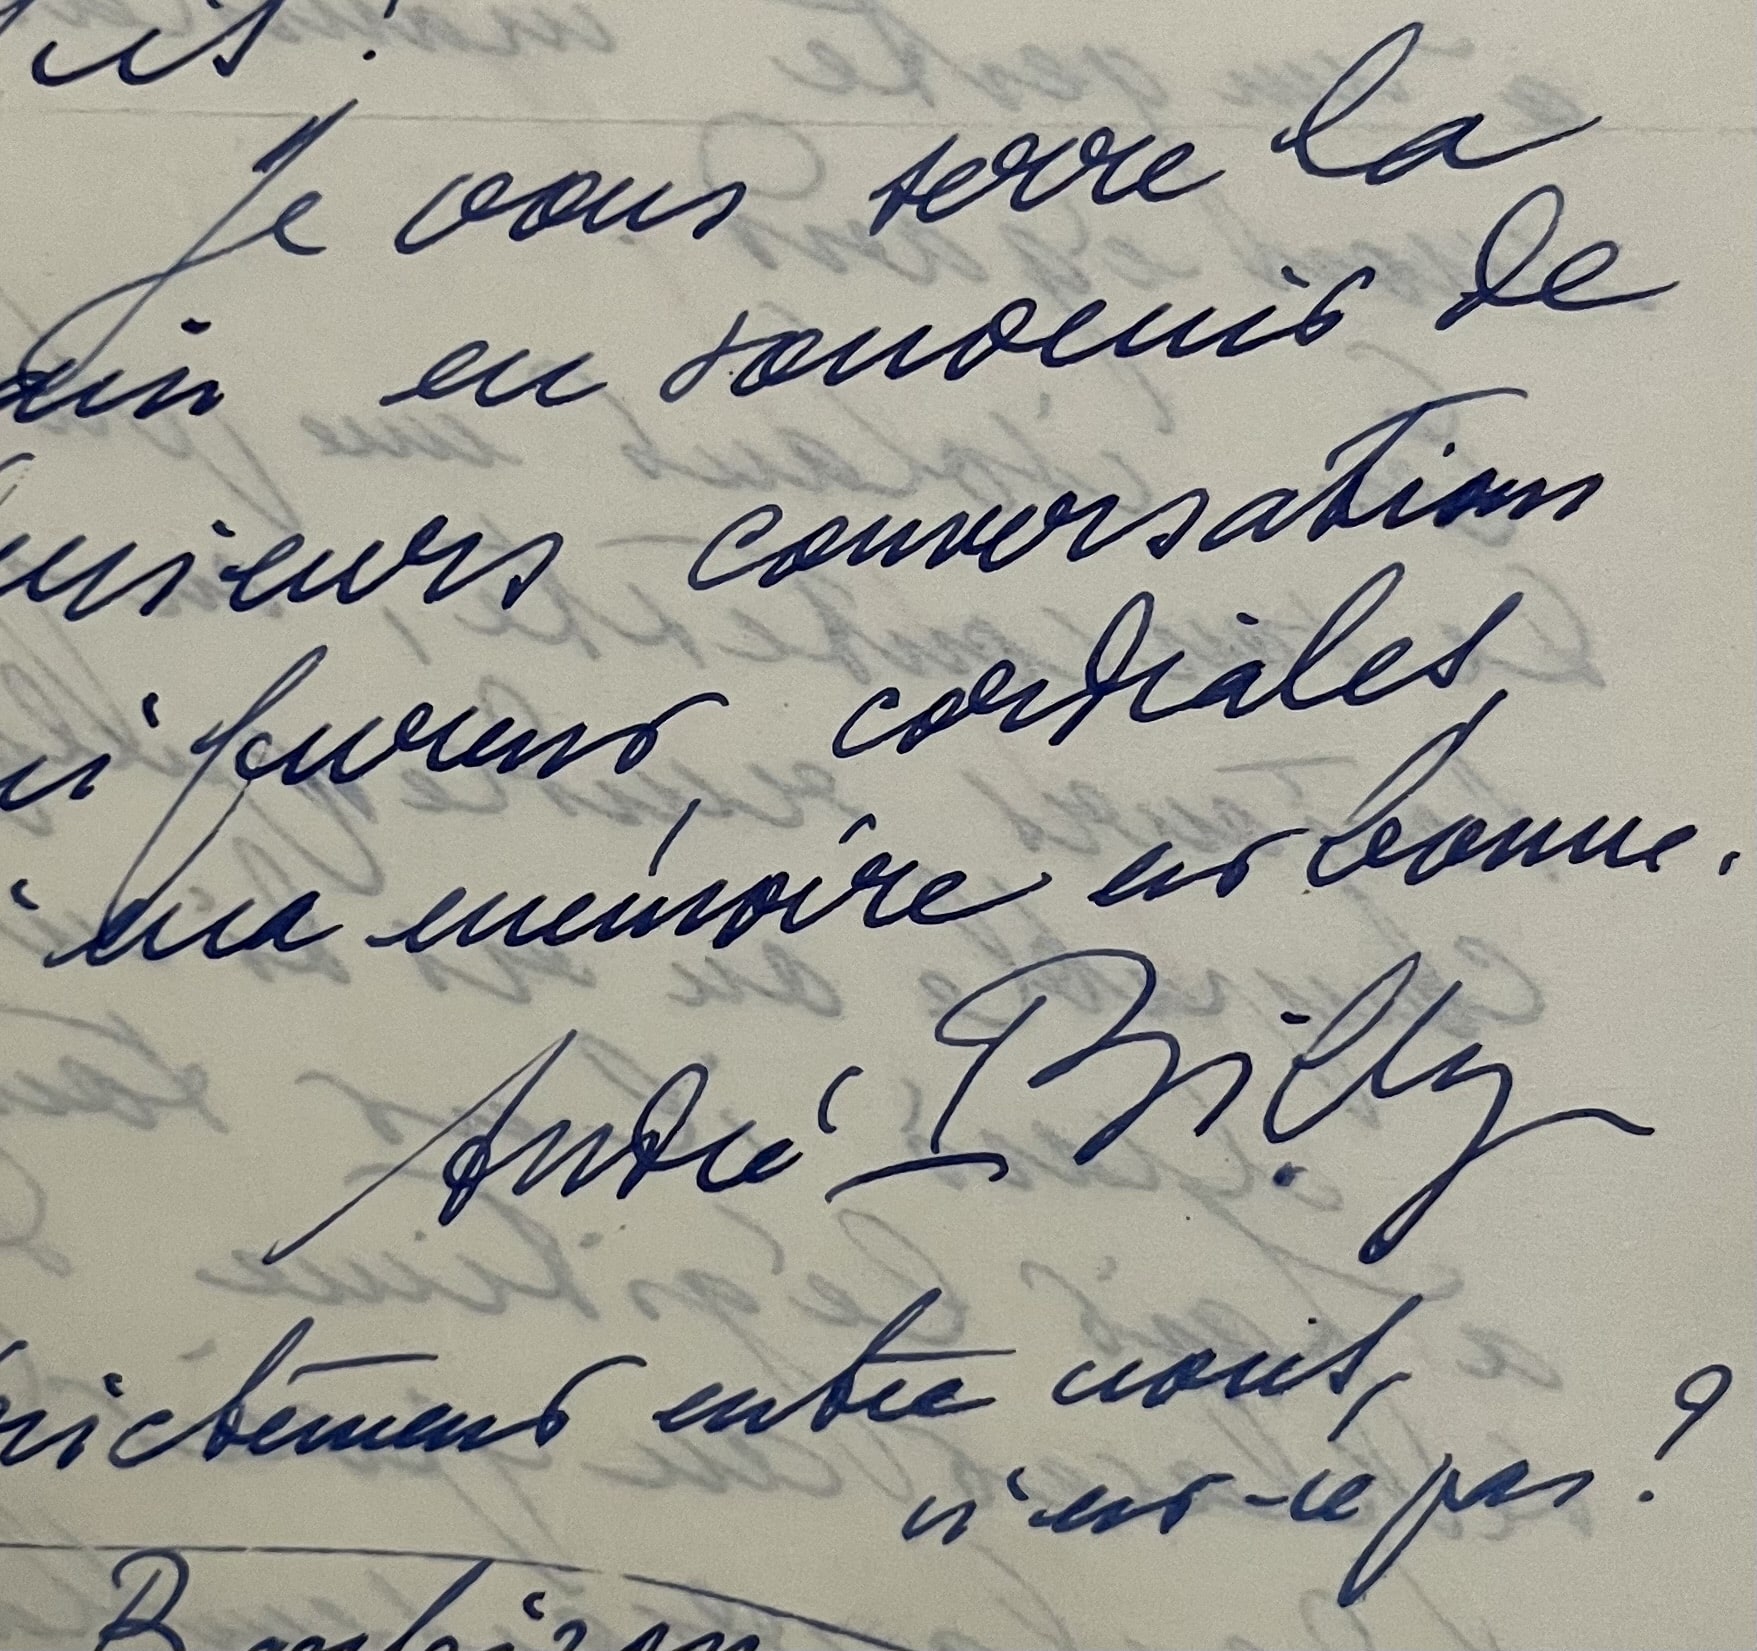 Je vous serre la
ain en souvenir de
usieurs conversations
i furent cordiales,
i ma mémoire est bonne.
André Billy
rictement entre nous,
n'est-ce pas ?
Barbizon